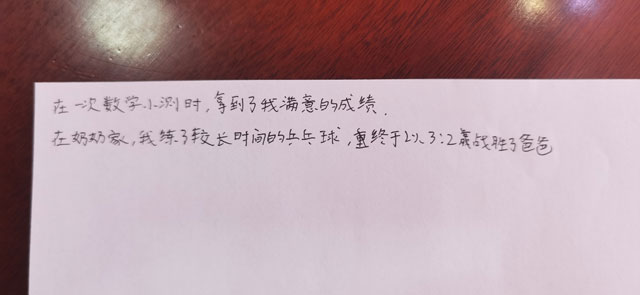 在一次数学小测时，拿到了我满意的成绩.
在奶奶家，我练了较长时间的乒乓球，终于以3:2战胜了爸爸